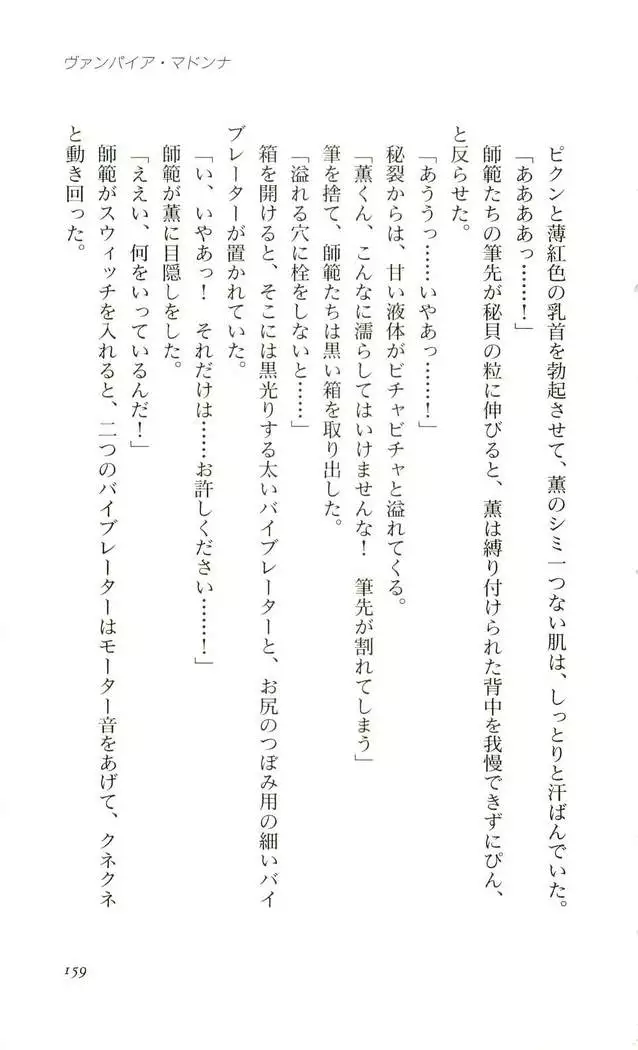 ヴァンパイア・マドンナ
ピクンと薄紅色の乳首を勃起させて、薫のシミ一つない肌は、しっとりと汗ばんでいた。
「ああああっ……！」
師範たちの筆先が秘貝の粒に伸びると、薫は縛り付けられた背中を我慢できずにぴん、
と反らせた。
「あううっ……いやあっ……！」
秘裂からは、甘い液体がビチャビチャと溢れてくる。
「薫くん、こんなに濡らしてはいけませんな！　筆先が割れてしまう」
筆を捨て、師範たちは黒い箱を取り出した。
「溢れる穴に栓をしないと……」
箱を開けると、そこには黒光りする太いバイブレーターと、お尻のつぼみ用の細いバイ
ブレーターが置かれていた。
「い、いやあっ！　それだけは……お許しください……！」
師範が薫に目隠しをした。
「ええい、何をいっているんだ！」
師範がスウィッチを入れると、二つのバイブレーターはモーター音をあげて、クネクネ
と動き回った。
159